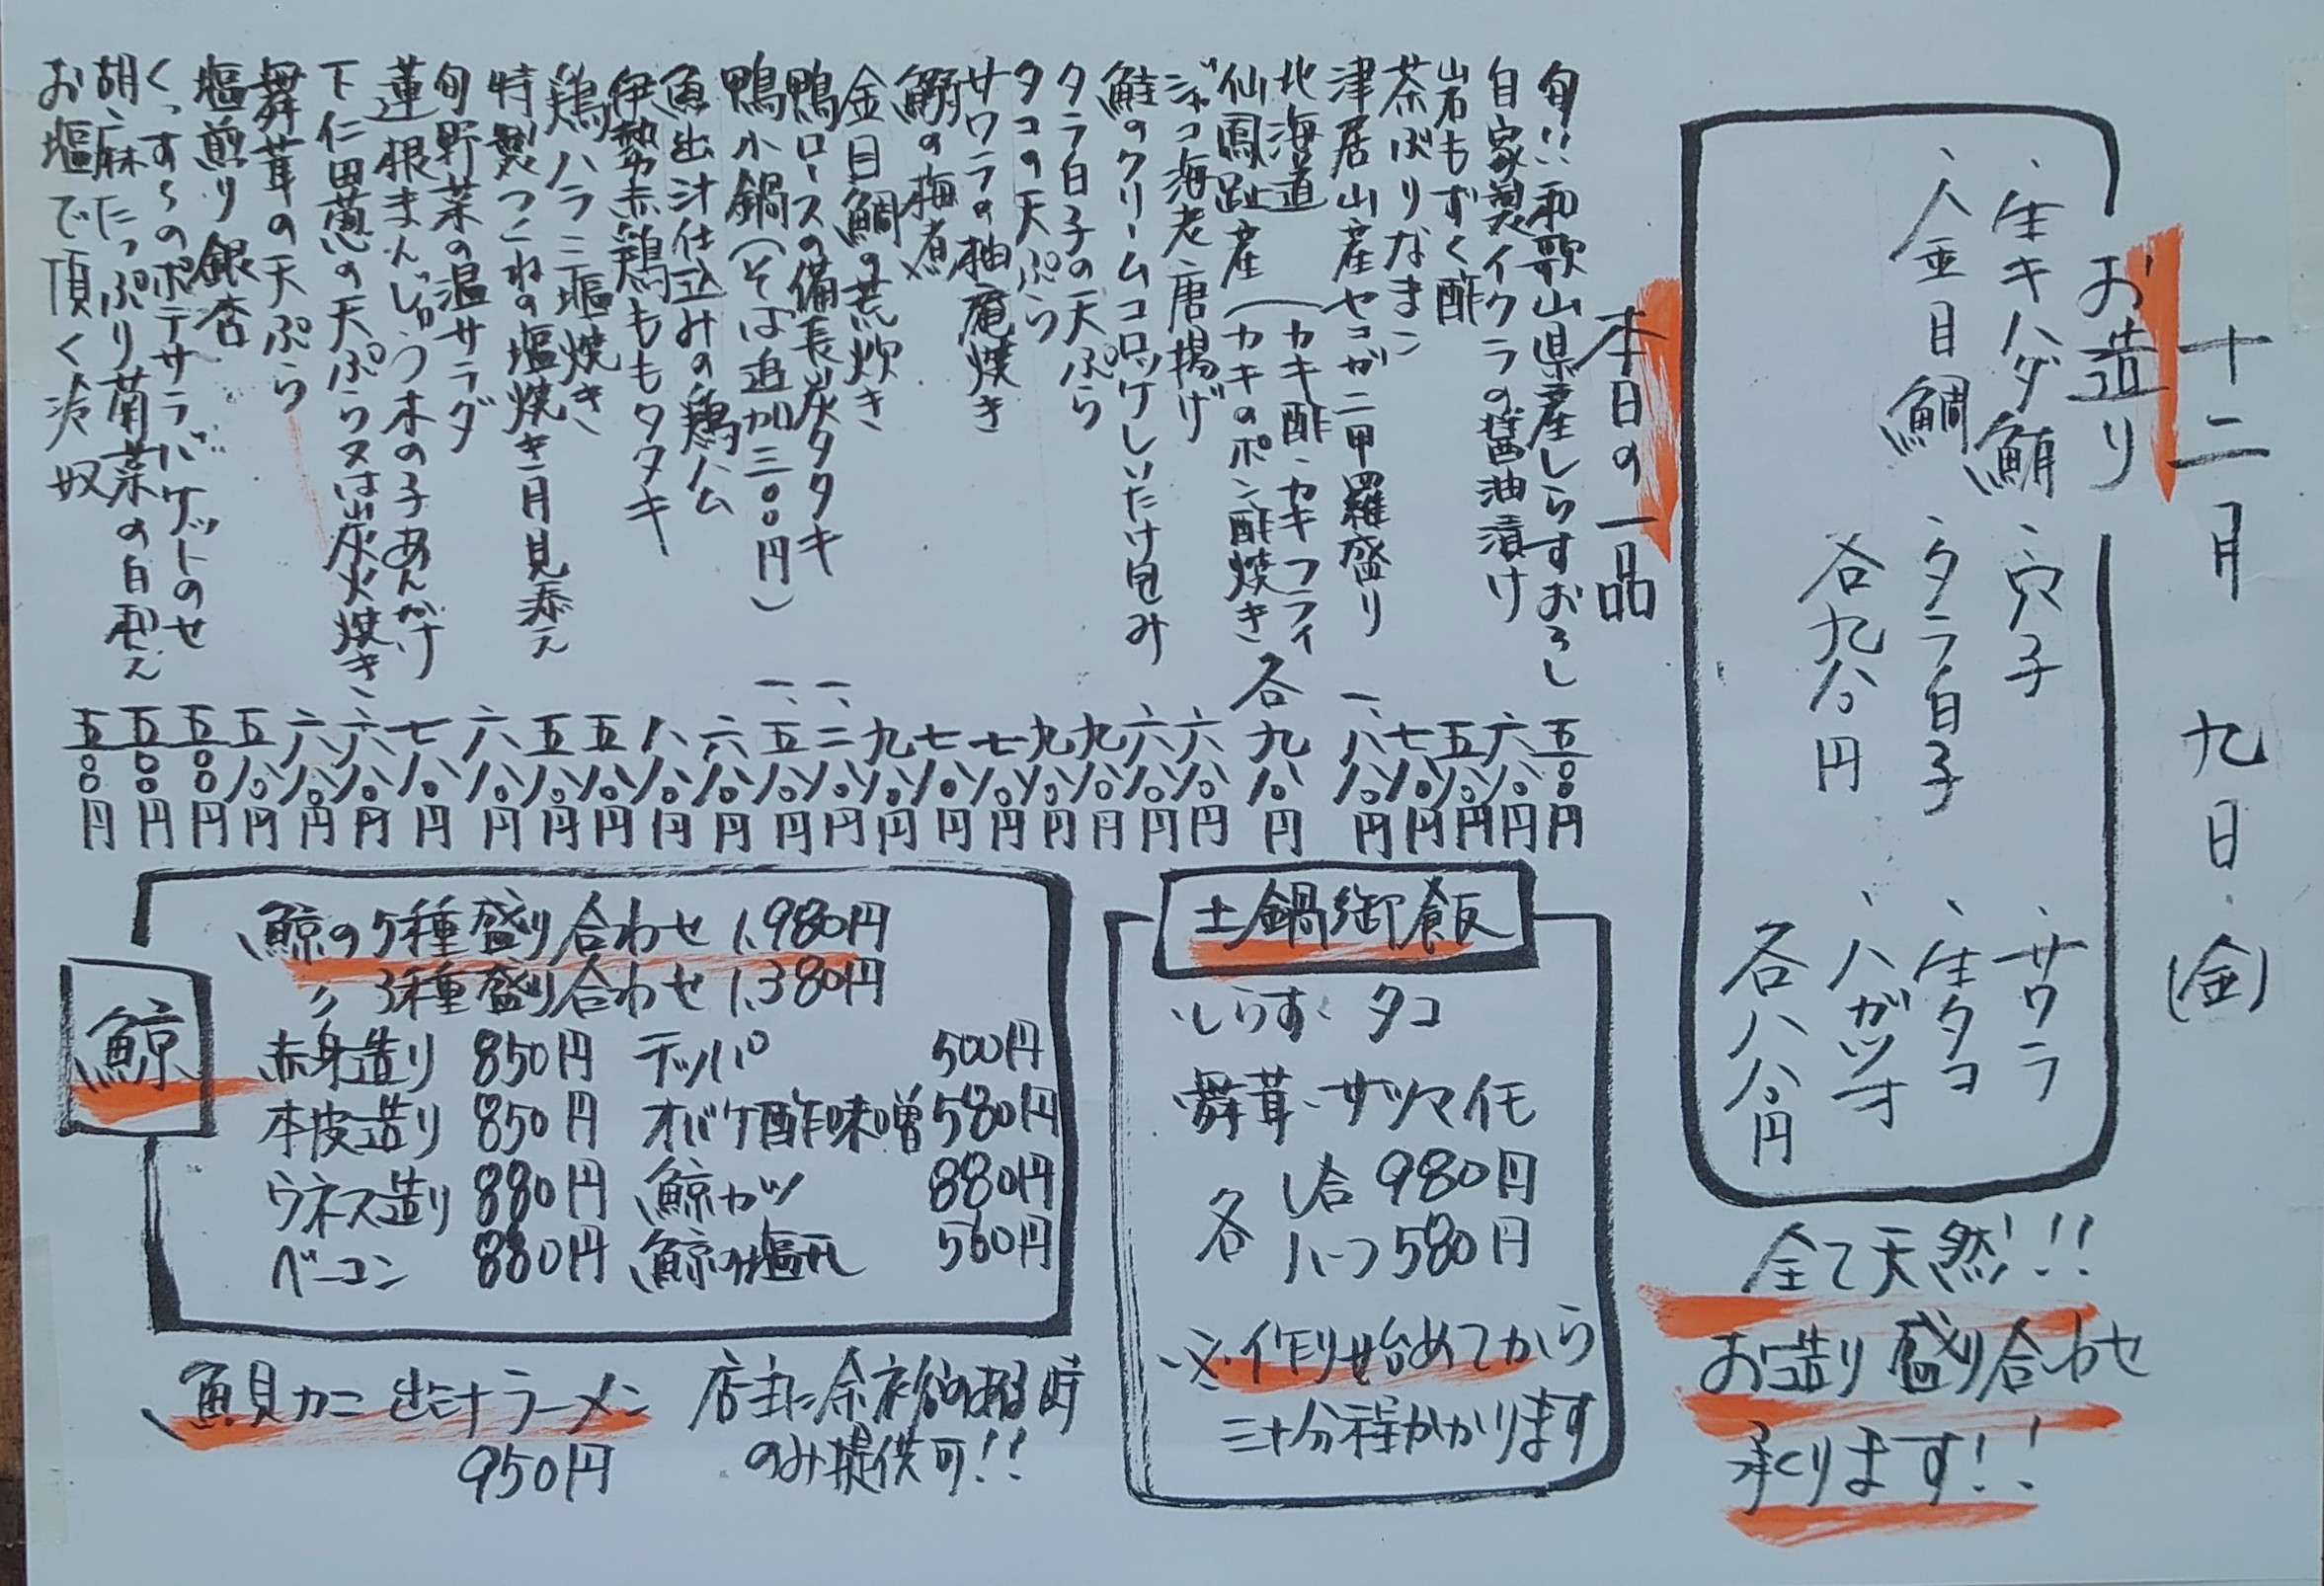 十二月 九日(金)
お造り
・生キハダ鮪 ・穴子 ・サワラ
・金目鯛 ・タラ白子 ・生タコ
各九八〇円 ・ハガツオ
各八八〇円
全て天然!!
お造り盛り合わせ
承ります!!
本日の一品
旬!!和歌山県産しらすおろし 五〇〇円
自家製イクラの醤油漬け 六八〇円
岩もずく酢 五八〇円
茶ぶりなまこ 七八〇円
津居山産セコガニ甲羅盛り 一、八八〇円
北海道
仙鳳趾産(カキ酢・カキフライ
カキのポン酢焼き 各九八〇円
ジャコ海老唐揚げ 六八〇円
鮭のクリームコロッケしいたけ包み 六八〇円
タラ白子の天ぷら 九八〇円
タコの天ぷら 九八〇円
サワラの柚庵焼き 七八〇円
の梅煮 七八〇円
金目鯛の荒炊き 九八〇円
鴨ロースの備長炭タタキ 一、二八〇円
鴨小鍋(そば追加三〇〇円) 一、五八〇円
魚出汁仕込みの鶏ハム 六八〇円
伊勢赤鶏ももタタキ 八八〇円
鶏ハラミ塩焼き 五八〇円
特製つこねの塩焼き月見添え 五八〇円
旬野菜の温サラダ 六八〇円
蓮根まんじゅう木の子あんかけ 七八〇円
下仁田葱の天ぷら又は炭火焼き 六八〇円
舞茸の天ぷら 六八〇円
塩煎り銀杏 五八〇円
くっす〜のポテサラバゲットのせ 五〇〇円
胡麻たっぷり菊菜の白和え 五〇〇円
お塩で頂く冷奴 五〇〇円
土鍋御飯
・しらす・タコ
・舞茸・サツマイモ
各 1合 980円
ハーフ 580円
※作り始めてから
三十分程かかります
鯨
鯨の5種盛り合わせ 1,980円
〃 3種盛り合わせ 1,380円
赤身造り 850円 テッパ 500円
本皮造り 850円 オバケ酢味噌 580円
ウネス造り 880円 鯨カツ 880円
ベーコン 880円 鯨の塩 560円
魚貝カニ出汁ラーメン 店主に余裕のある時
950円 のみ提供可!!